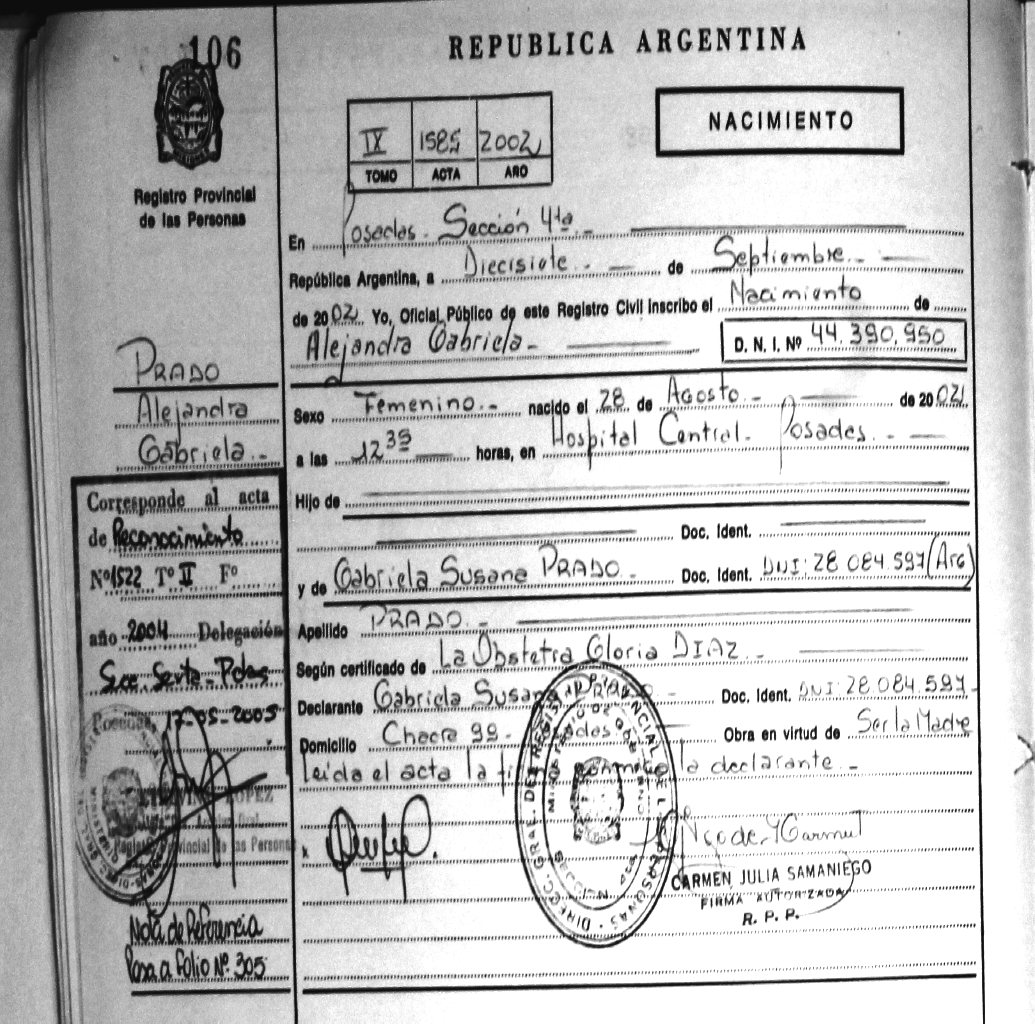 106
REPUBLICA ARGENTINA
NACIMIENTO
IX 1585 2002
TOMO ACTA AÑO
Registro Provincial
de las Personas
En Posadas. Sección 4ta.-
República Argentina, a Diecisiete.- de Septiembre.-
de 2002. Yo, Oficial Público de este Registro Civil inscribo el Nacimiento de
Alejandra Gabriela.-
D. N. I. Nº 44.390.950
PRADO
Alejandra
Gabriela.-
Sexo Femenino.- nacido el 28 de Agosto.- de 2002
a las 12 35 horas, en Hospital Central. Posadas.-
Hijo de
Doc. Ident.
y de Gabriela Susana PRADO. Doc. Ident. DNI: 28.084.597 (Arg)
Apellido PRADO.-
Según certificado de La Obstetra Gloria DIAZ.-
Declarante Gabriela Susana PRADO.- Doc. Ident. DNI: 28.084.597-
Domicilio Chacra 99.- Posadas.- Obra en virtud de Ser la Madre
Leida el acta la firma conmigo la declarante.-
CARMEN JULIA SAMANIEGO
FIRMA AUTORIZADA
R. P. P.
Corresponde al acta
de Reconocimiento
Nº 1522 Tº II Fº
año 2004 Delegación
Secc. Sexta - Pdas
Posadas, 17-05-2005
LOPEZ
Registro Provincial de las Personas
Nota de Referencia
Pasa a Folio Nº 305